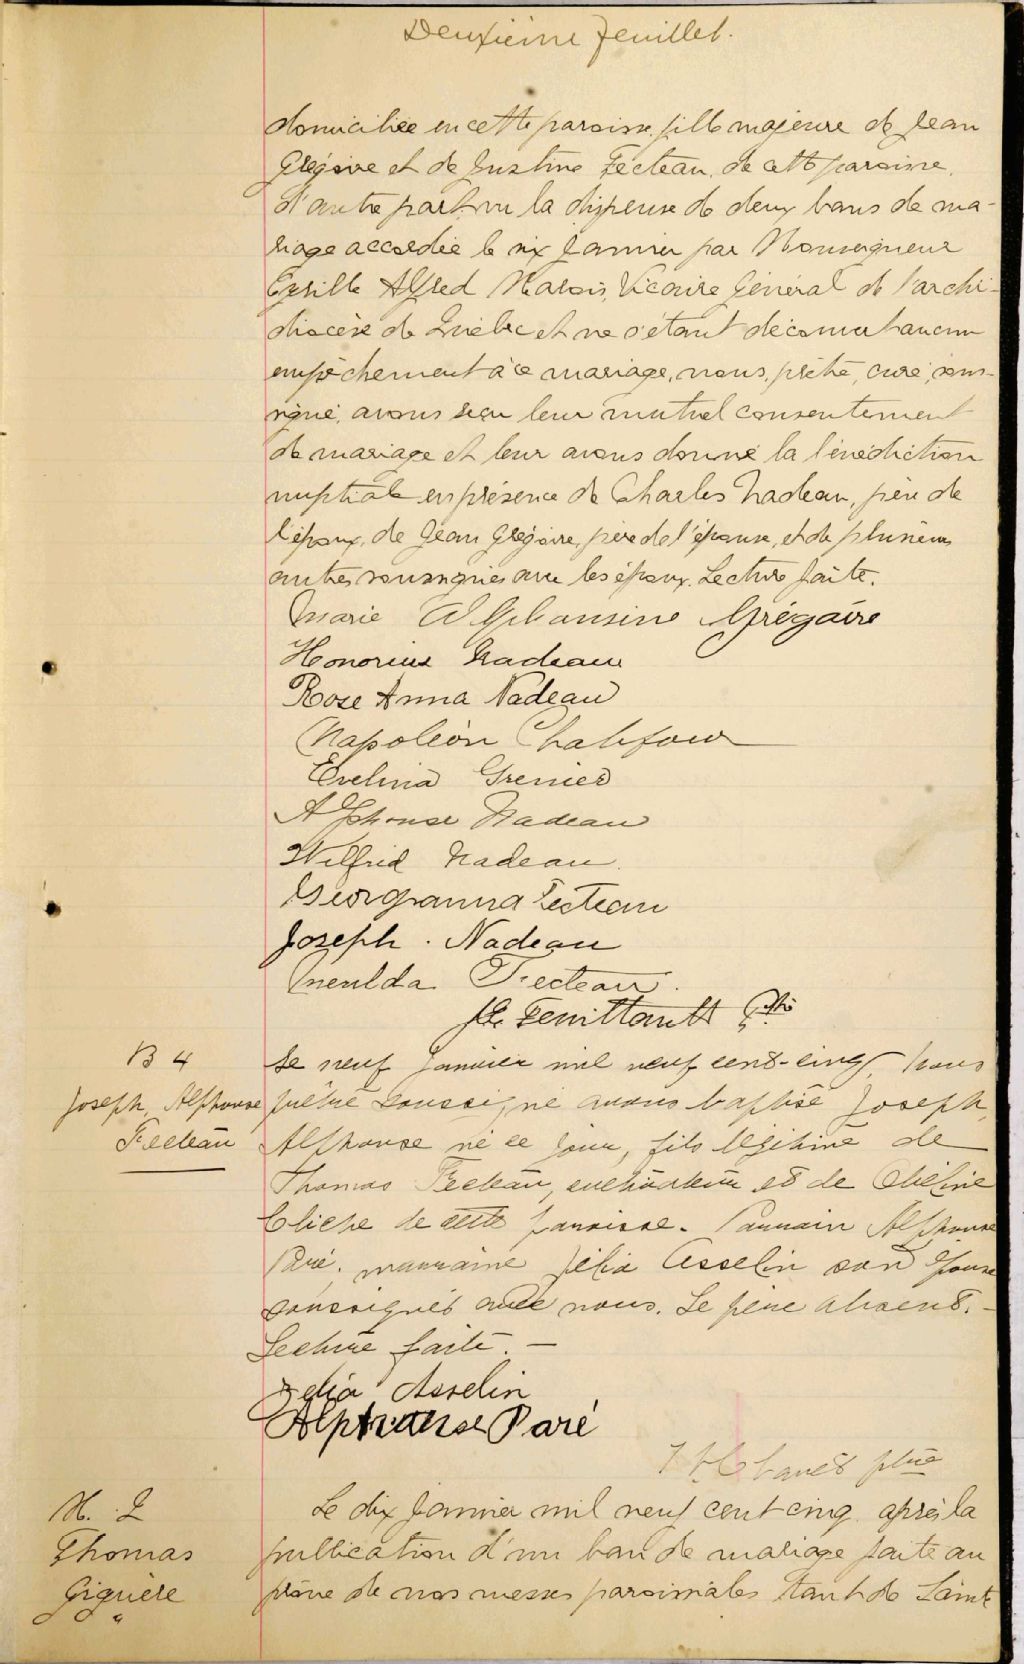 Deuxième feuillet.
domiciliée en cette paroisse, fille majeure de Jean
Grégoire et de Justine Fecteau, de cette paroisse,
d'autre part, vu la dispense de deux bans de ma-
riage accordée le six janvier par Monseigneur
Cyrille Alfred Marois, Vicaire Général de l'archi-
diocèse de Québec et ne s'étant découvert aucun
empêchement à ce mariage, nous, prêtre, curé, sous-
signé, avons reçu leur mutuel consentement
de mariage et leur avons donné la bénédiction
nuptiale en présence de Charles Nadeau, père de
l'époux, de Jean Grégoire, père de l'épouse, et de plusieurs
autres soussignés avec les époux. Lecture faite.
Marie Alphonsine Grégoire
Honorius Nadeau
Rose Anna Nadeau
Napoléon
Evelina Grenier
Alphonse Nadeau
Wilfrid Nadeau
Georgianna Fecteau
Joseph. Nadeau
Fecteau.
J. E. Feuiltault Ptre
B 4
Joseph, Alphonse
Fecteau
Le neuf janvier mil neuf cent-cinq, Nous
prêtre soussigné avons baptisé Joseph,
Alphonse né ce jour, fils légitime de
Thomas Fecteau, cultivateur et de
Cliche de cette paroisse. Parrain Alphonse
Paré, marraine Délia Asselin son épouse
soussignés avec nous. Le père absent. -
Lecture faite. -
Délia Asselin
Alphonse Paré
ptre
M. 2
Thomas
Giguère
"
Le dix janvier mil neuf cent cinq, après la
publication d'un ban de mariage faite au
prône de nos messes paroissiales tant de Sainte